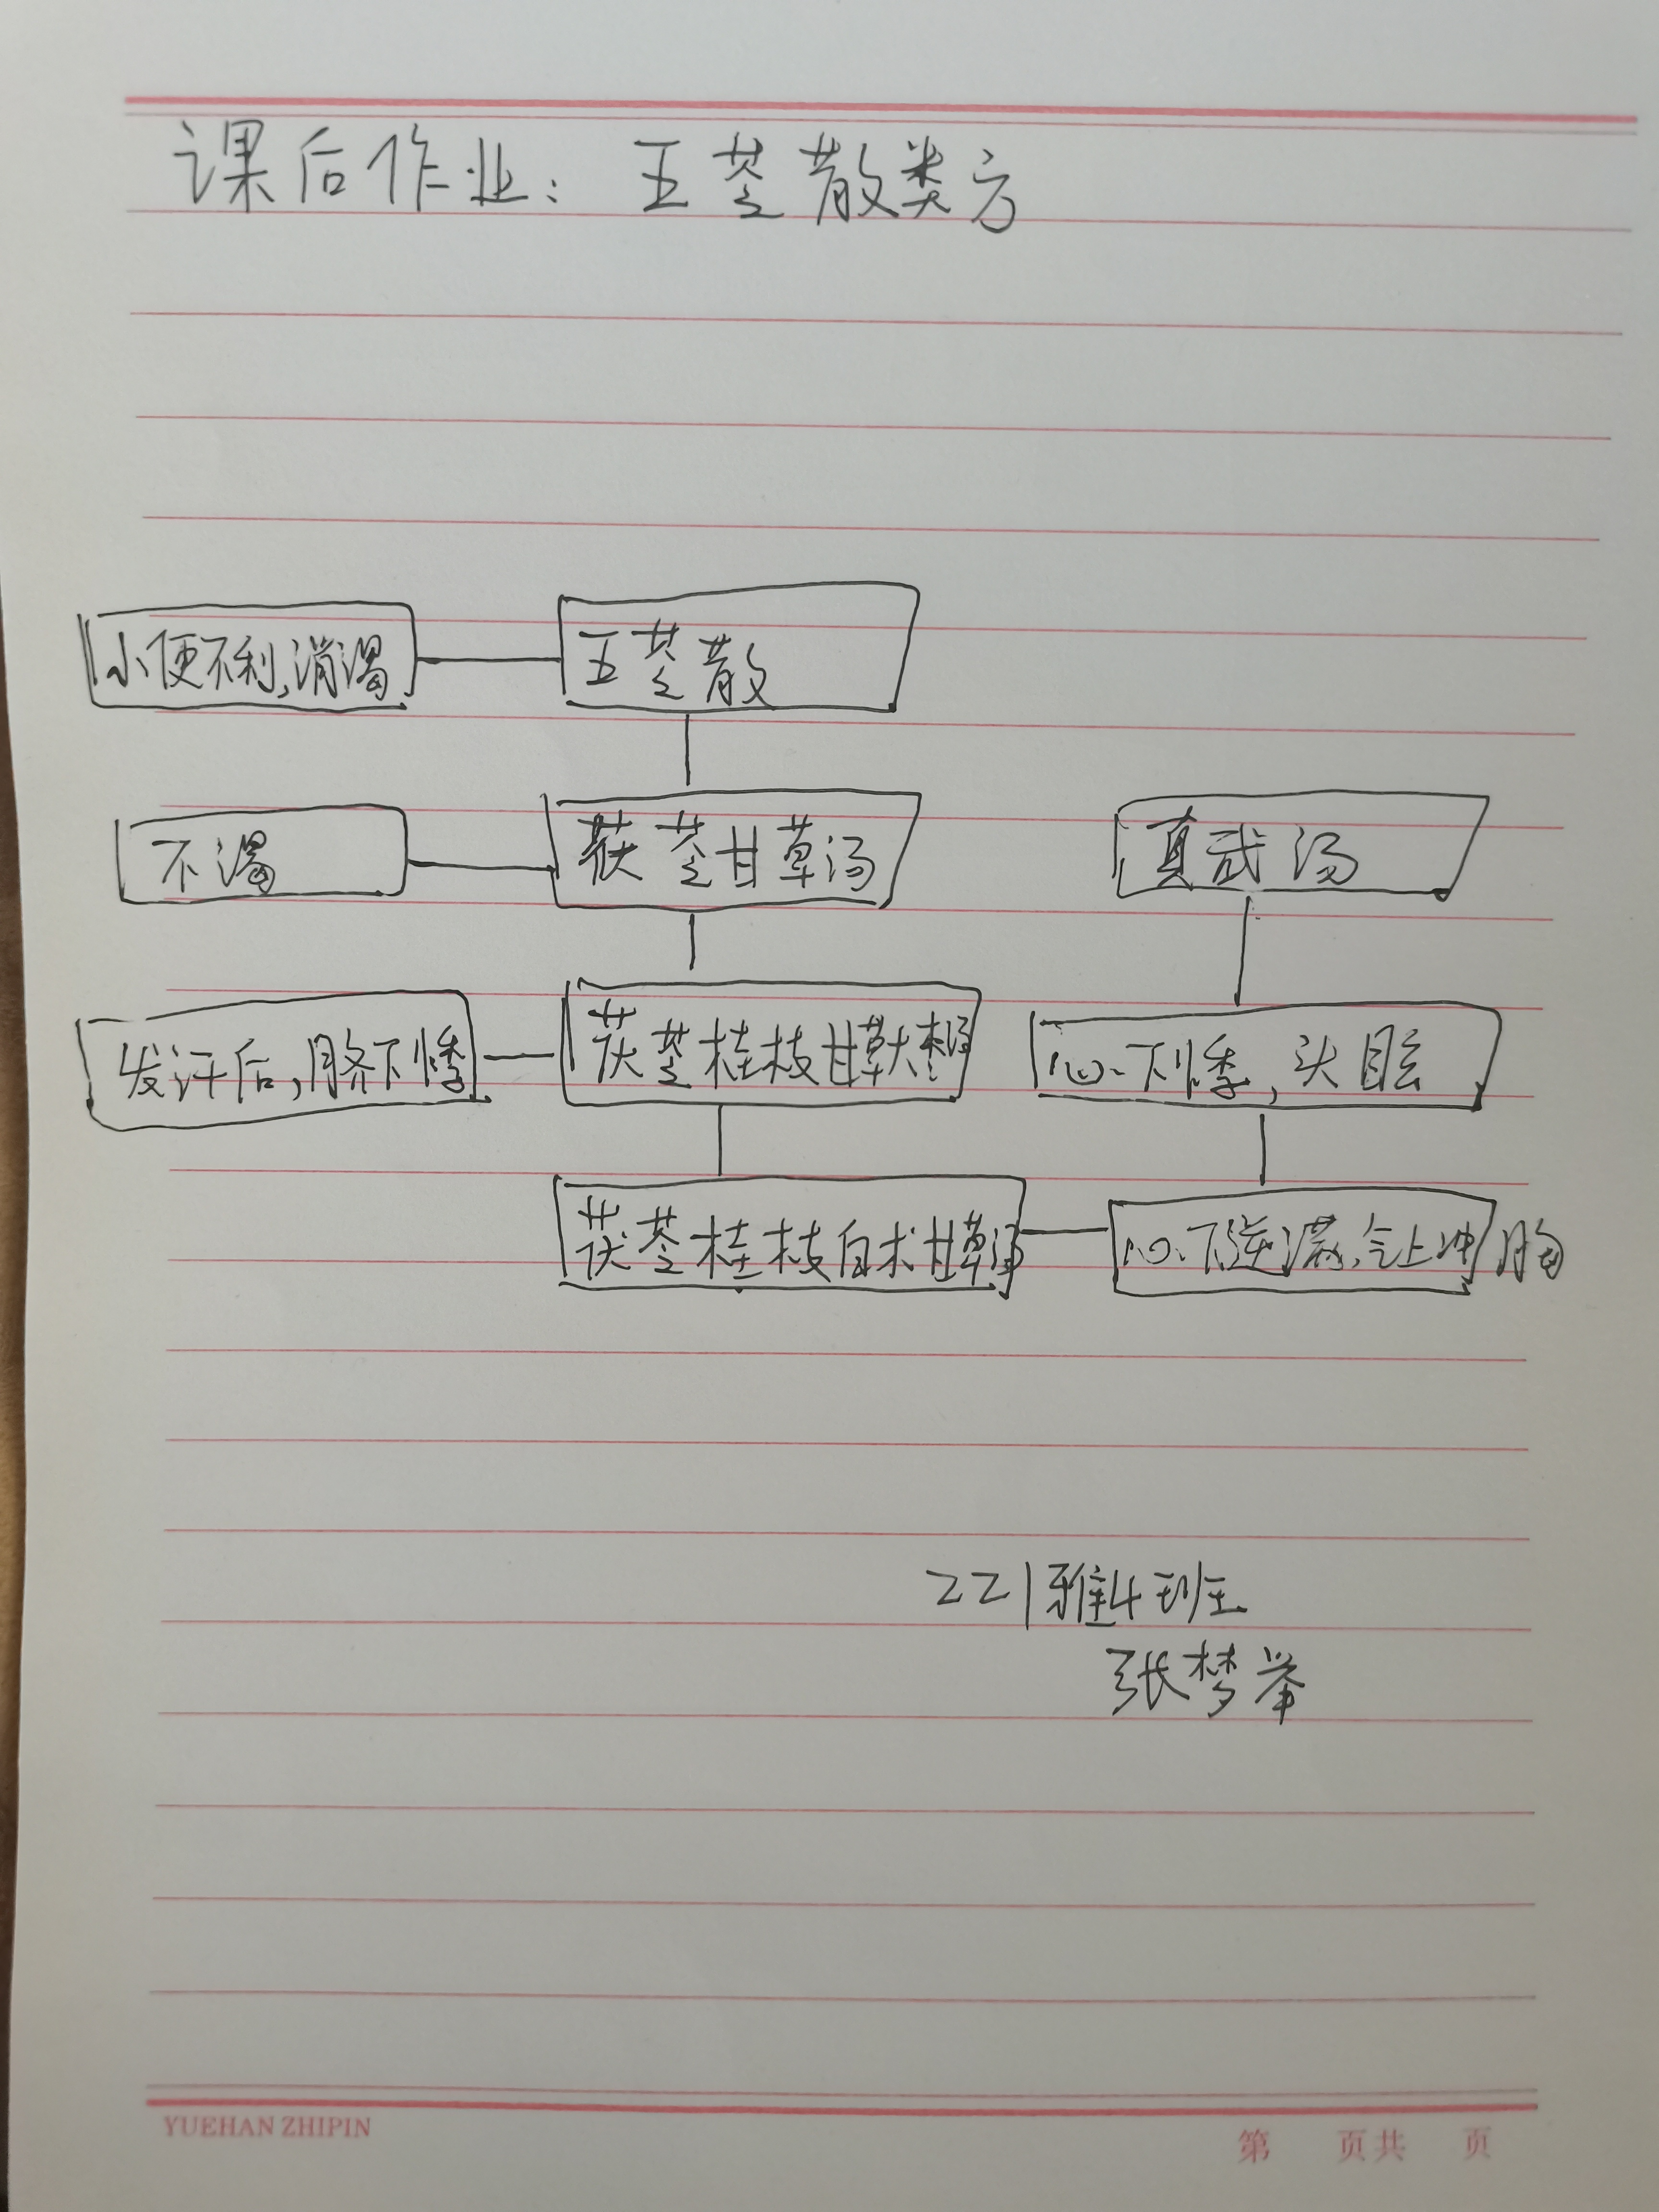 课后作业：五苓散类方
小便不利，消渴 五苓散
不渴 茯苓甘草汤 真武汤
发汗后，脐下悸 茯苓桂枝甘草大枣汤 心下悸，头眩
茯苓桂枝白术甘草汤 心下逆满，气上冲胸
221雅4班
张梦举
YUEHAN ZHIPIN 第 页共 页